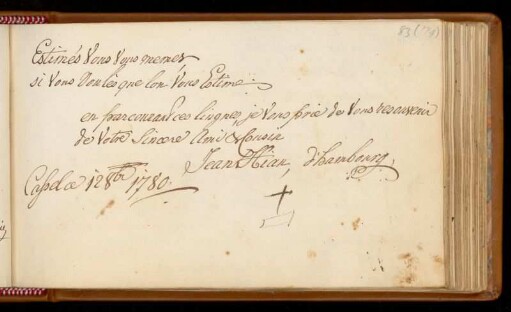 83 (131)
Estimés Vous Vous memes
si Vous Voulés que lon Vous Estime
en parcourant ces lignes, je Vous prie de Vous resouvenir
de Votre Sincere Ami & Cousin
Jean Hiar, d'hambourg.
Cassel ce 12 8br 1780.